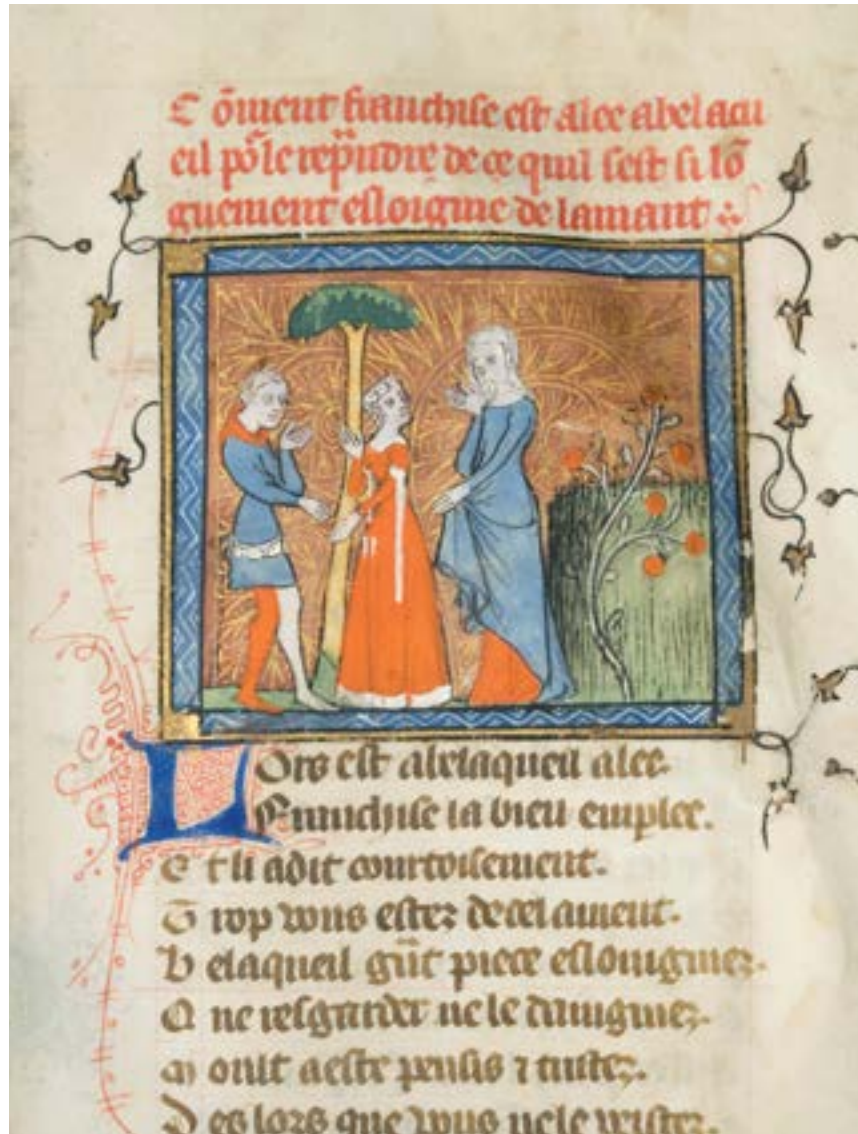 C õment franchise est alee abelacu
eil põ le rep̃ndre de ce quil sest si lõ
guement esloignie de lamant
Lors est abelaqueil alee
Franchise la bien emplee.
E t li adit courtoisement.
T rop vous estez de cel ament.
B elaqueil g̃nt piece eslongniez.
Q ne resgarder ne le daingniez.
M oult aeste pensis ⁊ tristez.
D es lors que vous ne le veistez.